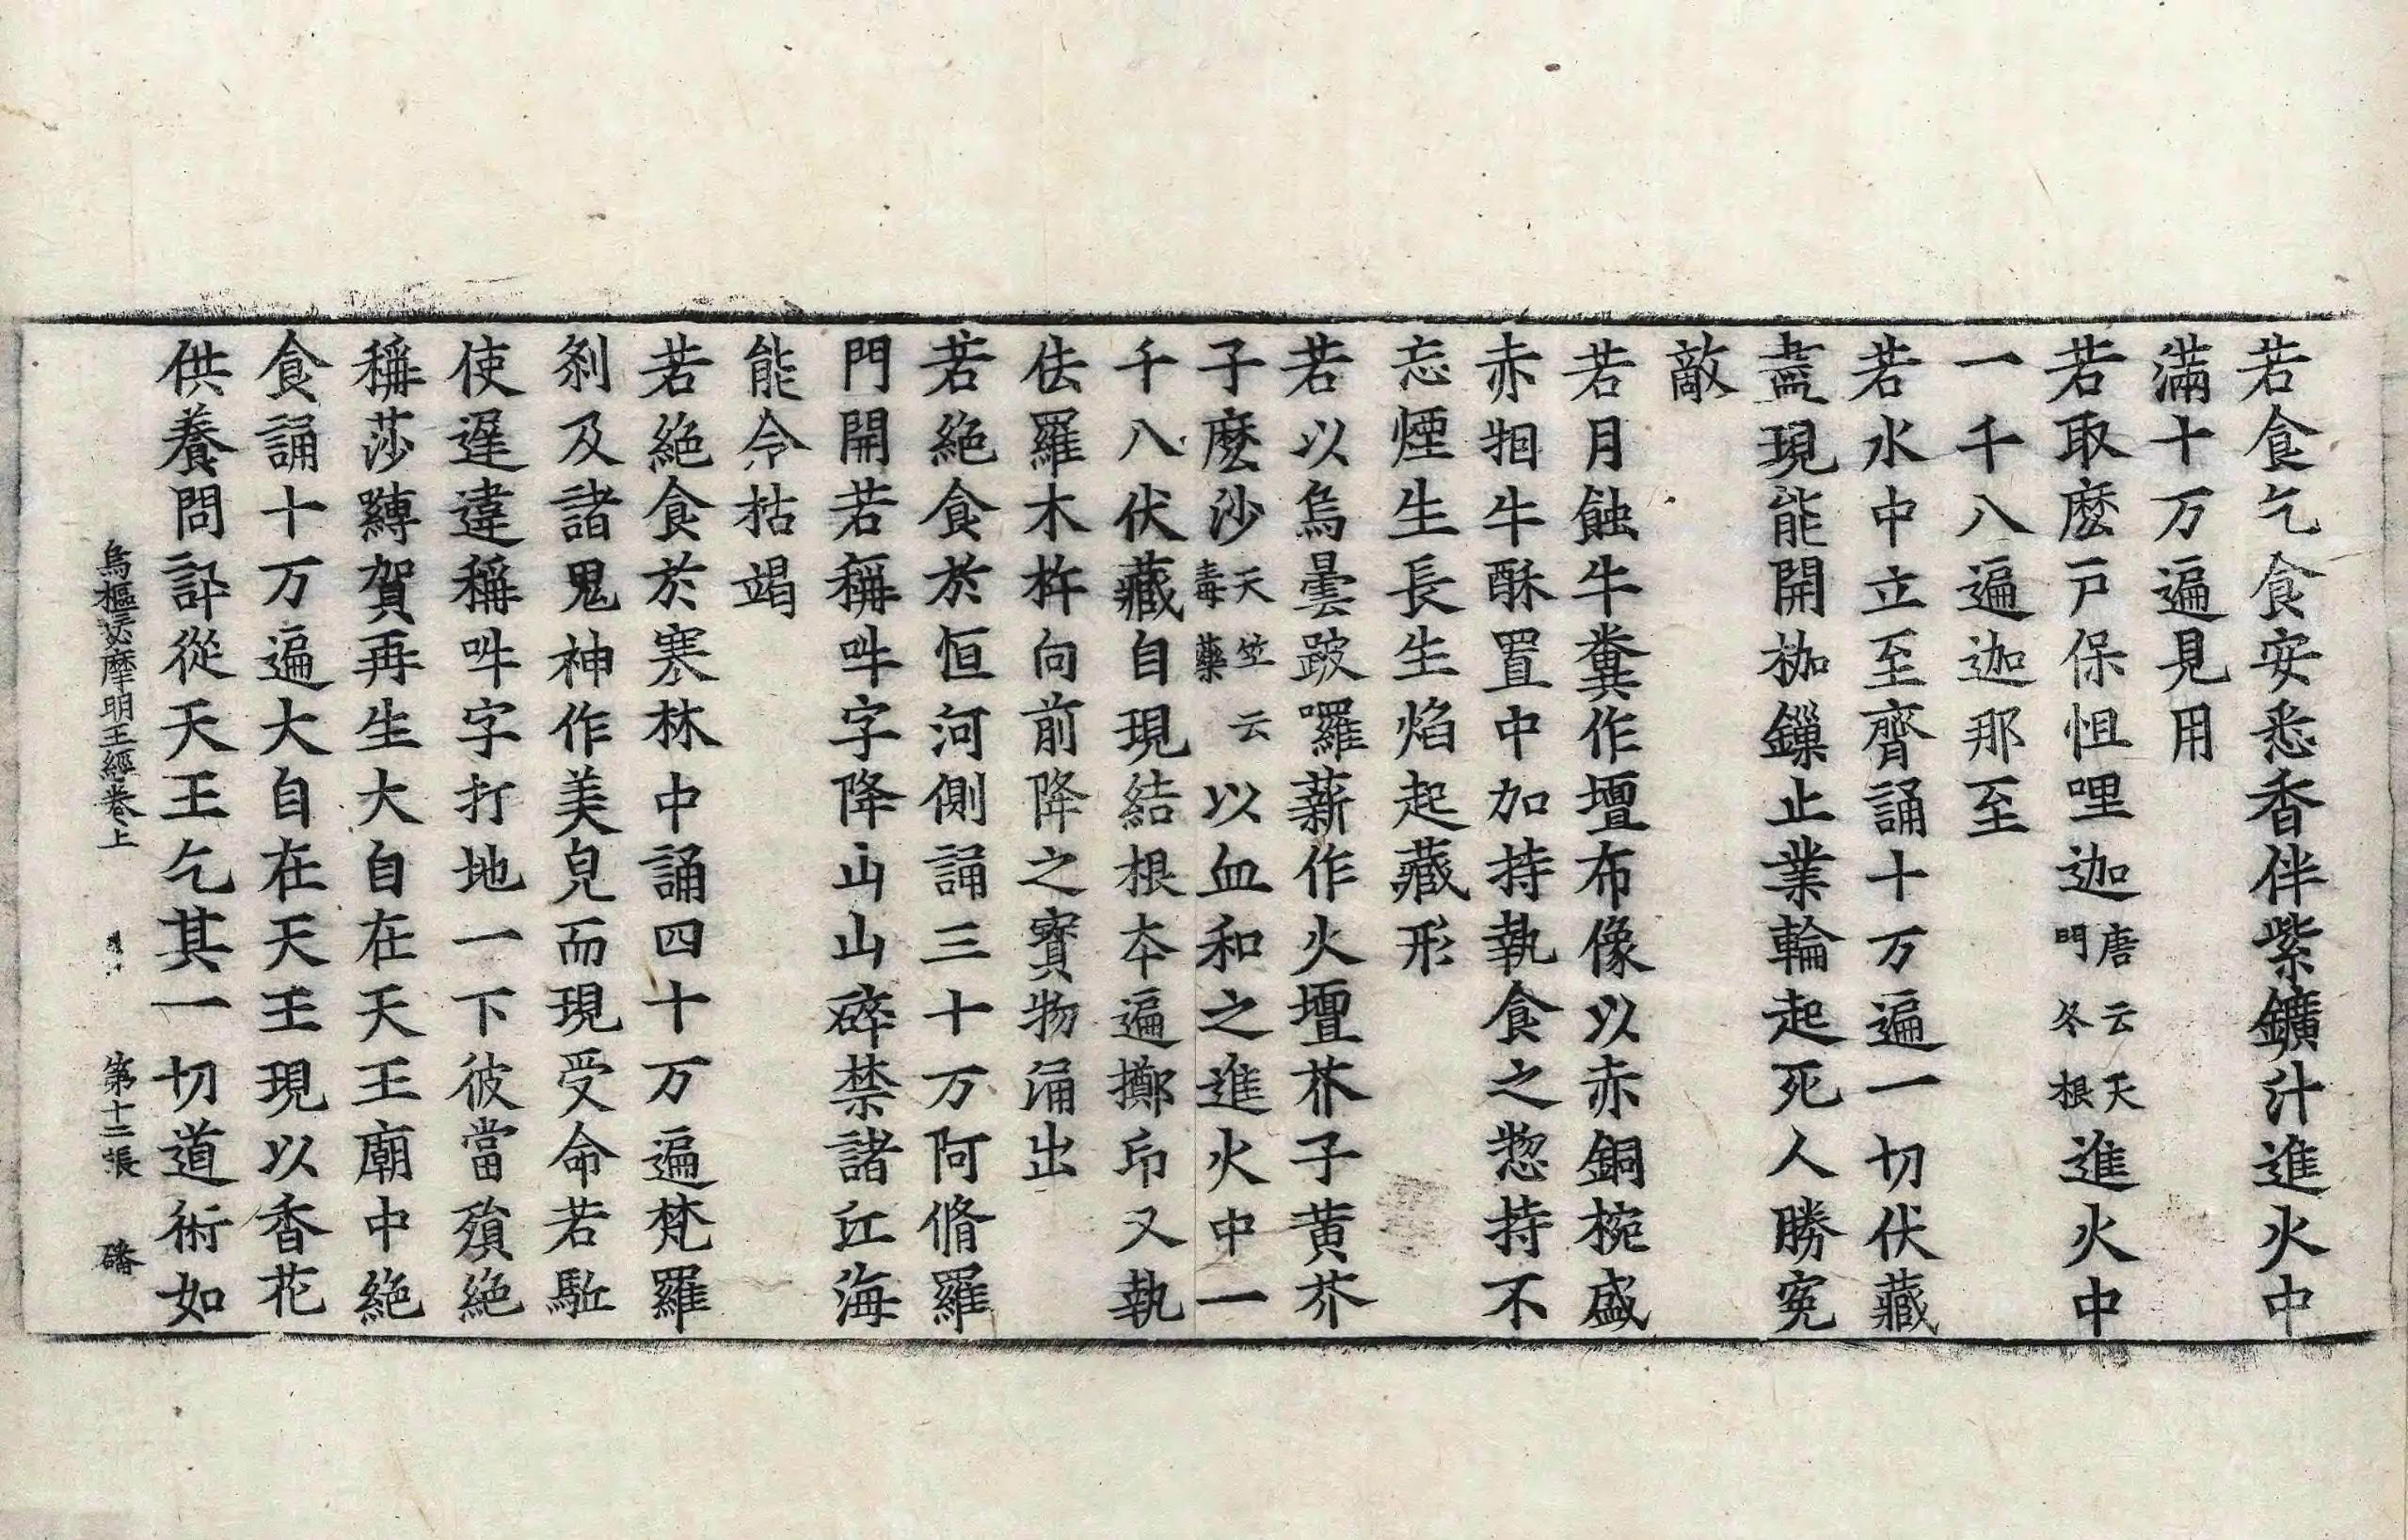 若食乞食安悉香伴紫鑛汁進火中
滿十万遍見用
若取麽戸保怛哩迦唐云天門冬根進火中
一千八遍迦那至
若水中立至齊誦十万遍一切伏藏
盡現能開枷鏁止業輪起死人勝寃
敵
若月蝕牛糞作壇布像以赤銅椀盛
赤㹀牛酥置中加持執食之惣持不
忘煙生長生焰起藏形
若以烏曇跛囉薪作火壇芥子黄芥
子麽沙天笁云毒藥以血和之進火中一
千八伏藏自現結根夲遍擲印又執
佉羅木杵向前降之寳物涌出
若絶食於恒河側誦三十万阿脩羅
門開若稱吽字降山山碎禁諸江海
能令枯竭
若絶食於寒林中誦四十万遍梵羅
刹及諸鬼神作美皃而現受命若駈
使遅違稱吽字打地一下彼當殞絶
稱莎縛賀再生大自在天王廟中絶
食誦十万遍大自在天王現以香花
供養問訃從天王乞其一切道術如
烏樞瑟摩明王經卷上 第十二張 磻